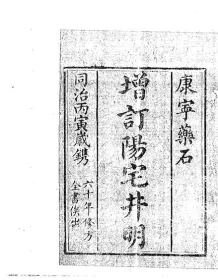 康寧藥石
增訂陽宅井明
同治丙寅歲鐫
六十年修方
全書俱出